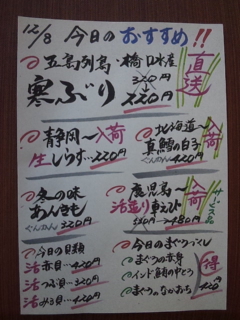 12/8 今日のおすすめ!!
五島列島・橋口水産 直送
320円
寒ぶり 220円
静岡〜入荷
生しらす…220円
北海道〜入荷
真鱈の白子
ぐんかん 420円
冬の味
あんきも
ぐんかん 220円
鹿児島〜入荷
活造り車えび
480円
サービス品
今日の貝類
活赤貝…420円
活つぶ貝…320円
活みる貝…420円
今日のまぐろづくし
まぐろの赤身
インド鮪の中とろ
まぐろのなかおち
得